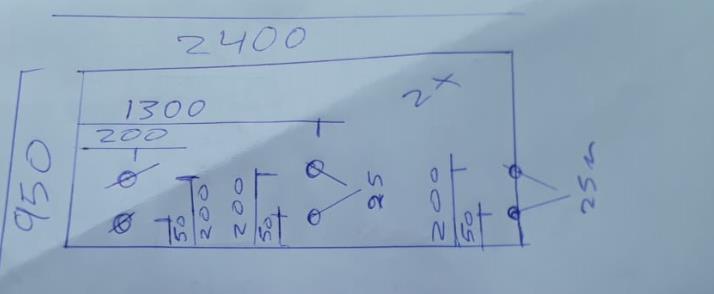 2400
2x
1300
200
950
50
200
200
50
25
200
50
25